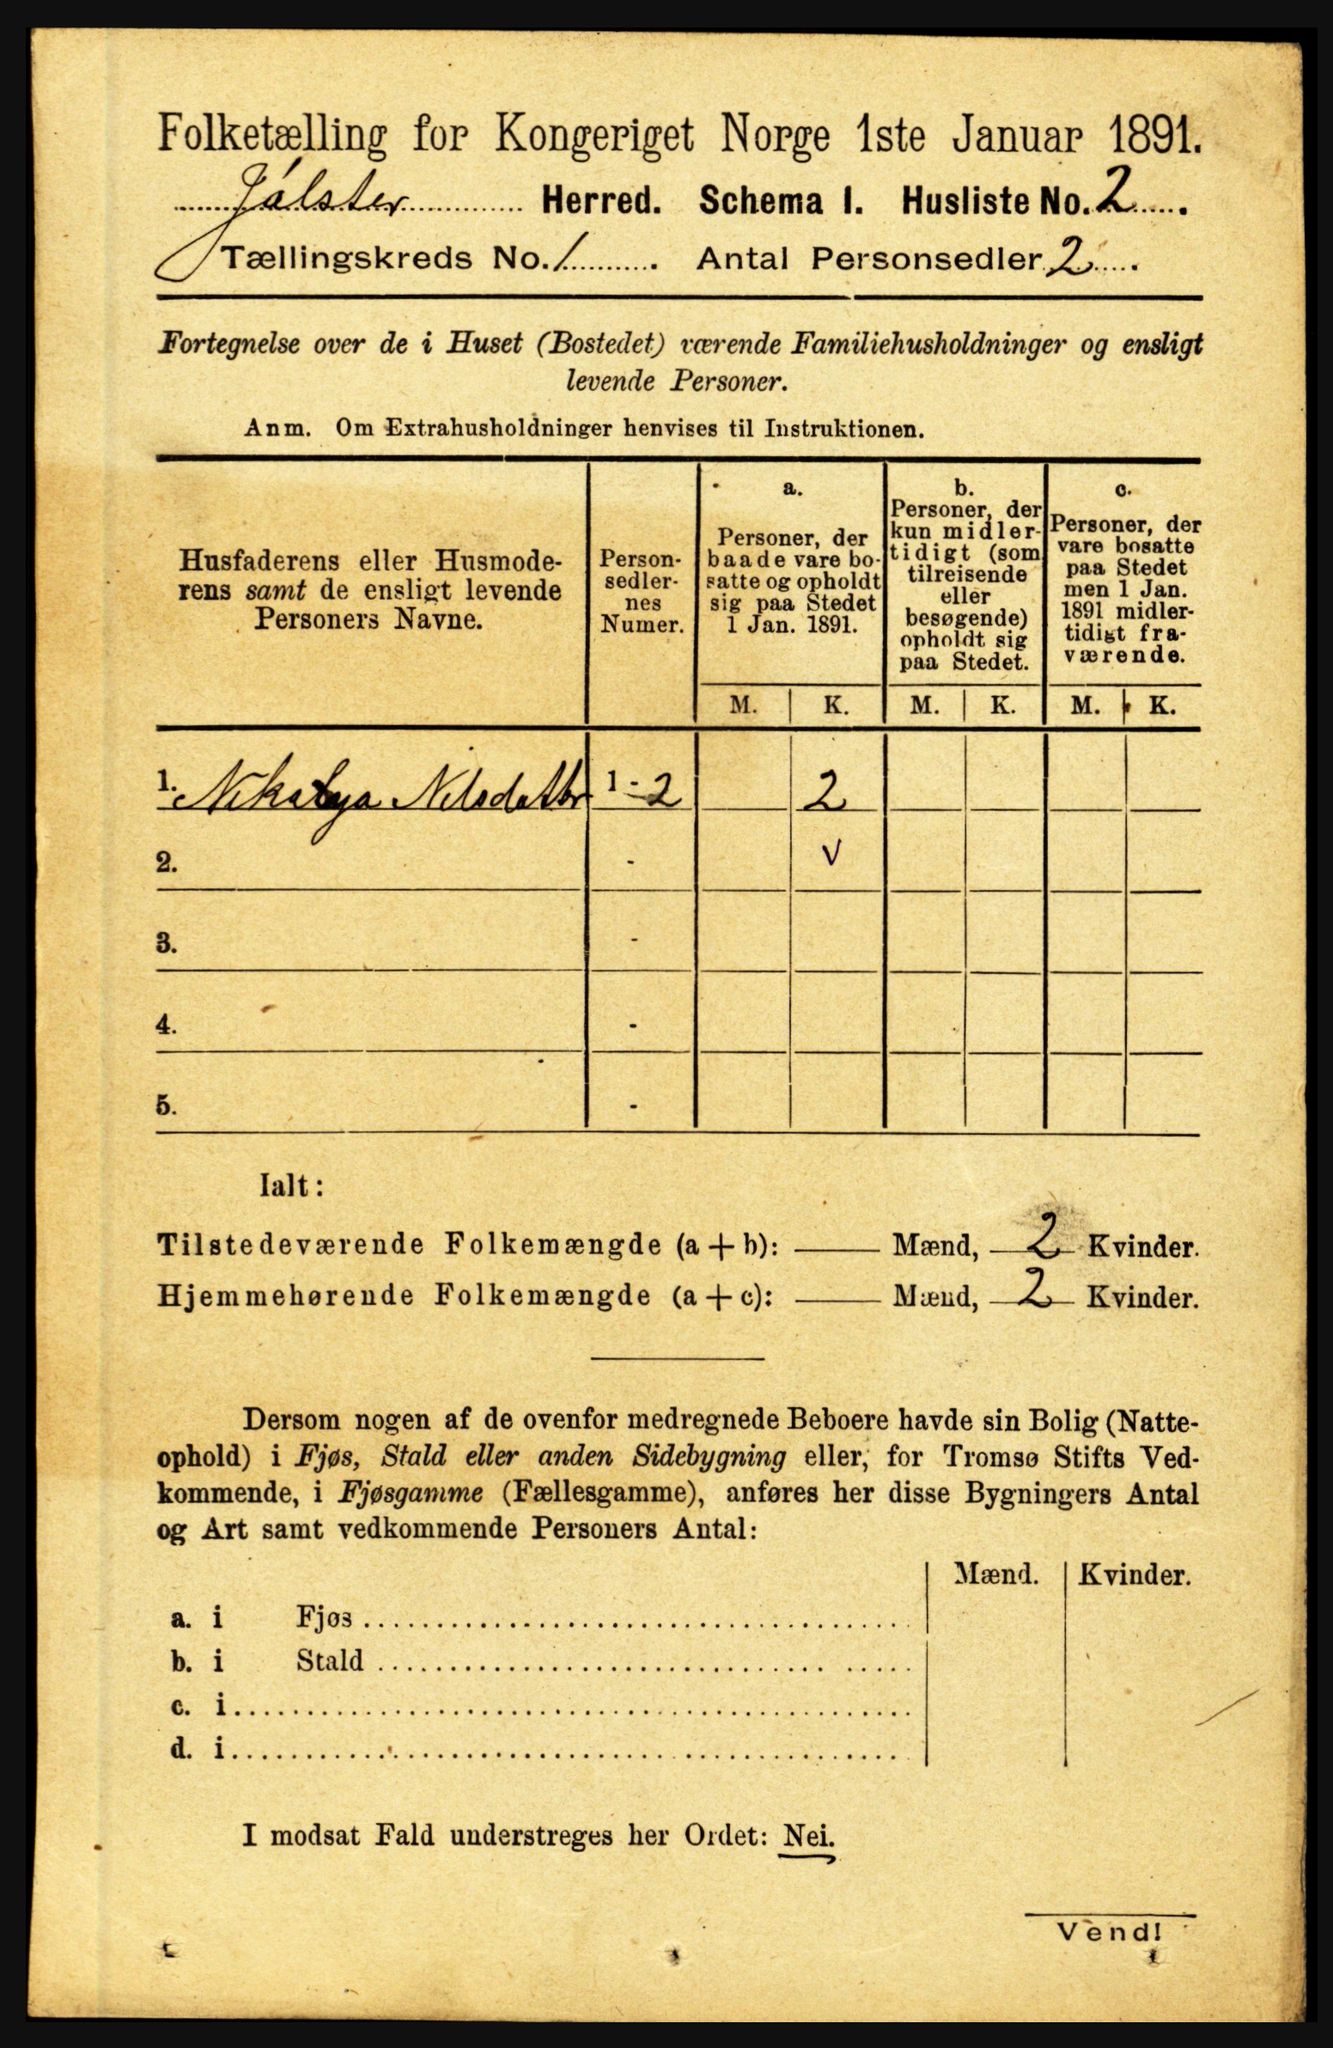 Folketælling for Kongeriget Norge 1ste Januar 1891.
Jølster Herred. Schema 1. Husliste No. 2
Tællingskreds No. 1 Antal Personsedler 2
Fortegnelse over de i Huset (Bostedet) værende Familiehusholdninger og ensligt
levende Personer.
Anm. Om Extrahusholdninger henvises til Instruktionen.
Husfaderens eller Husmode-
rens samt de ensligt levende
Personers Navne.
Person-
sedler-
nes
Numer.
a.
Personer, der
baade vare bo-
satte og opholdt
sig paa Stedet
1 Jan. 1891.
b.
Personer, der
kun midler-
tidigt (som
tilreisende
eller
besøgende)
opholdt sig
paa Stedet.
c.
Personer, der
vare bosatte
paa Stedet
men 1 Jan.
1891 midler-
tidigt fra-
værende.
M. K. M. K. M. K.
1. Nilsdatter 1 - 2 2
2. - v
3. -
4. -
5. -
Ialt:
Tilstedeværende Folkemængde (a + b): Mænd, 2 Kvinder.
Hjemmehørende Folkemængde (a + c): Mænd, 2 Kvinder.
Dersom nogen af de ovenfor medregnede Beboere havde sin Bolig (Natte-
ophold) i Fjøs, Stald eller anden Sidebygning eller, for Tromsø Stifts Ved-
kommende, i Fjøsgamme (Fællesgamme), anføres her disse Bygningers Antal
og Art samt vedkommende Personers Antal:
Mænd. Kvinder.
a. i Fjøs
b. i Stald
c. i
d. i
I modsat Fald understreges her Ordet: Nei.
Vend!